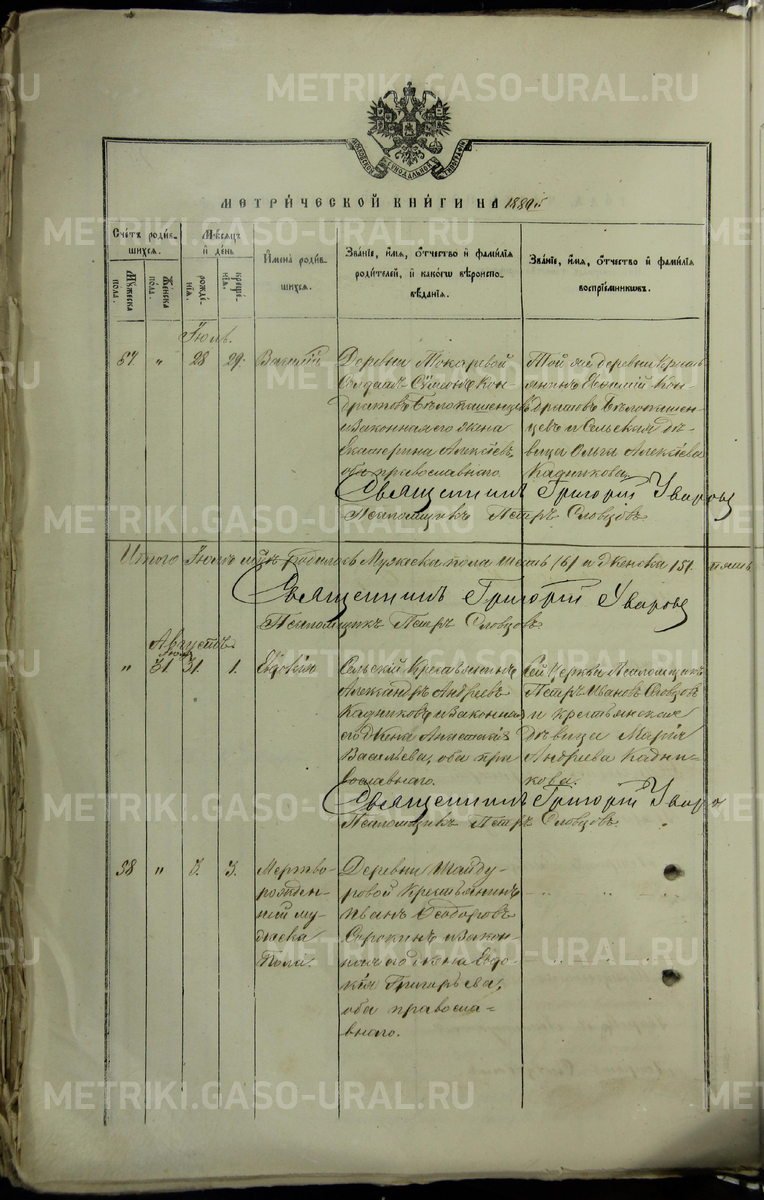 METRIKI.GASO-URAL.RU
МЕТРИ́ЧЕСКОЙ КНИ́ГИ НА 1880 г.
Сче́тъ роди́в-
шихся.
Му́жеска пола.
Же́нска пола.
Мѣсяцъ
и день
рожде́-
нія.
креще́-
нія.
И́мена роди́в-
шихся.
Зва́ніе, и́мя, ѻ́тчество и фами́лія
роди́телей, и како́гѡ вѣроиспо-
вѣ́данія.
Зва́ніе, и́мя, ѻ́тчество и фами́лія
воспріе́мниковъ.
Іюль.
57. " 28 29.
Деревни Токаревой
Солдатъ Сѵмеонъ Кон-
дратовъ Бѣлопашенцевъ
и законная его жена
Екатерина Алексѣев.
оба православнаго.
Той же деревни крестья
нинъ Евѳимій Кон-
дратовъ Бѣлопашен-
цевъ и Сельская дѣ-
вица Ольга Алексѣева
Кадникова.
Священникъ Григорій Уваровъ
Псаломщикъ Петръ Словцовъ
Итого Іюлѣ м-цѣ родилось Мужеска пола шесть /6/ а женска /5/. пять
Священникъ Григорій Уваровъ
Псаломщикъ Петръ Словцовъ.
Августъ
Іюль
" 31 31. 1. Евдокія
Сельскій крестьянинъ
Александръ Андреев
Кадниковъ и законная
его жена Анастасія
Васильева, оба пра
вославнаго.
Сей Церкви Псаломщикъ
Петръ Ивановъ Словцов
и крестьянская
дѣвица Марія
Андреева Кадни-
кова.
Священникъ Григорій Уваро
Псаломщикъ Петръ Словцовъ.
58 " 3. 3.
Мертво-
рожден-
ный му-
жеска
пола.
Деревни Шайду-
ровой Крестьянинъ
Иванъ Ѳеодоровъ
Сорокинъ и закон-
ная его жена Евдо-
кія Григорьева,
оба правосла-
внаго.